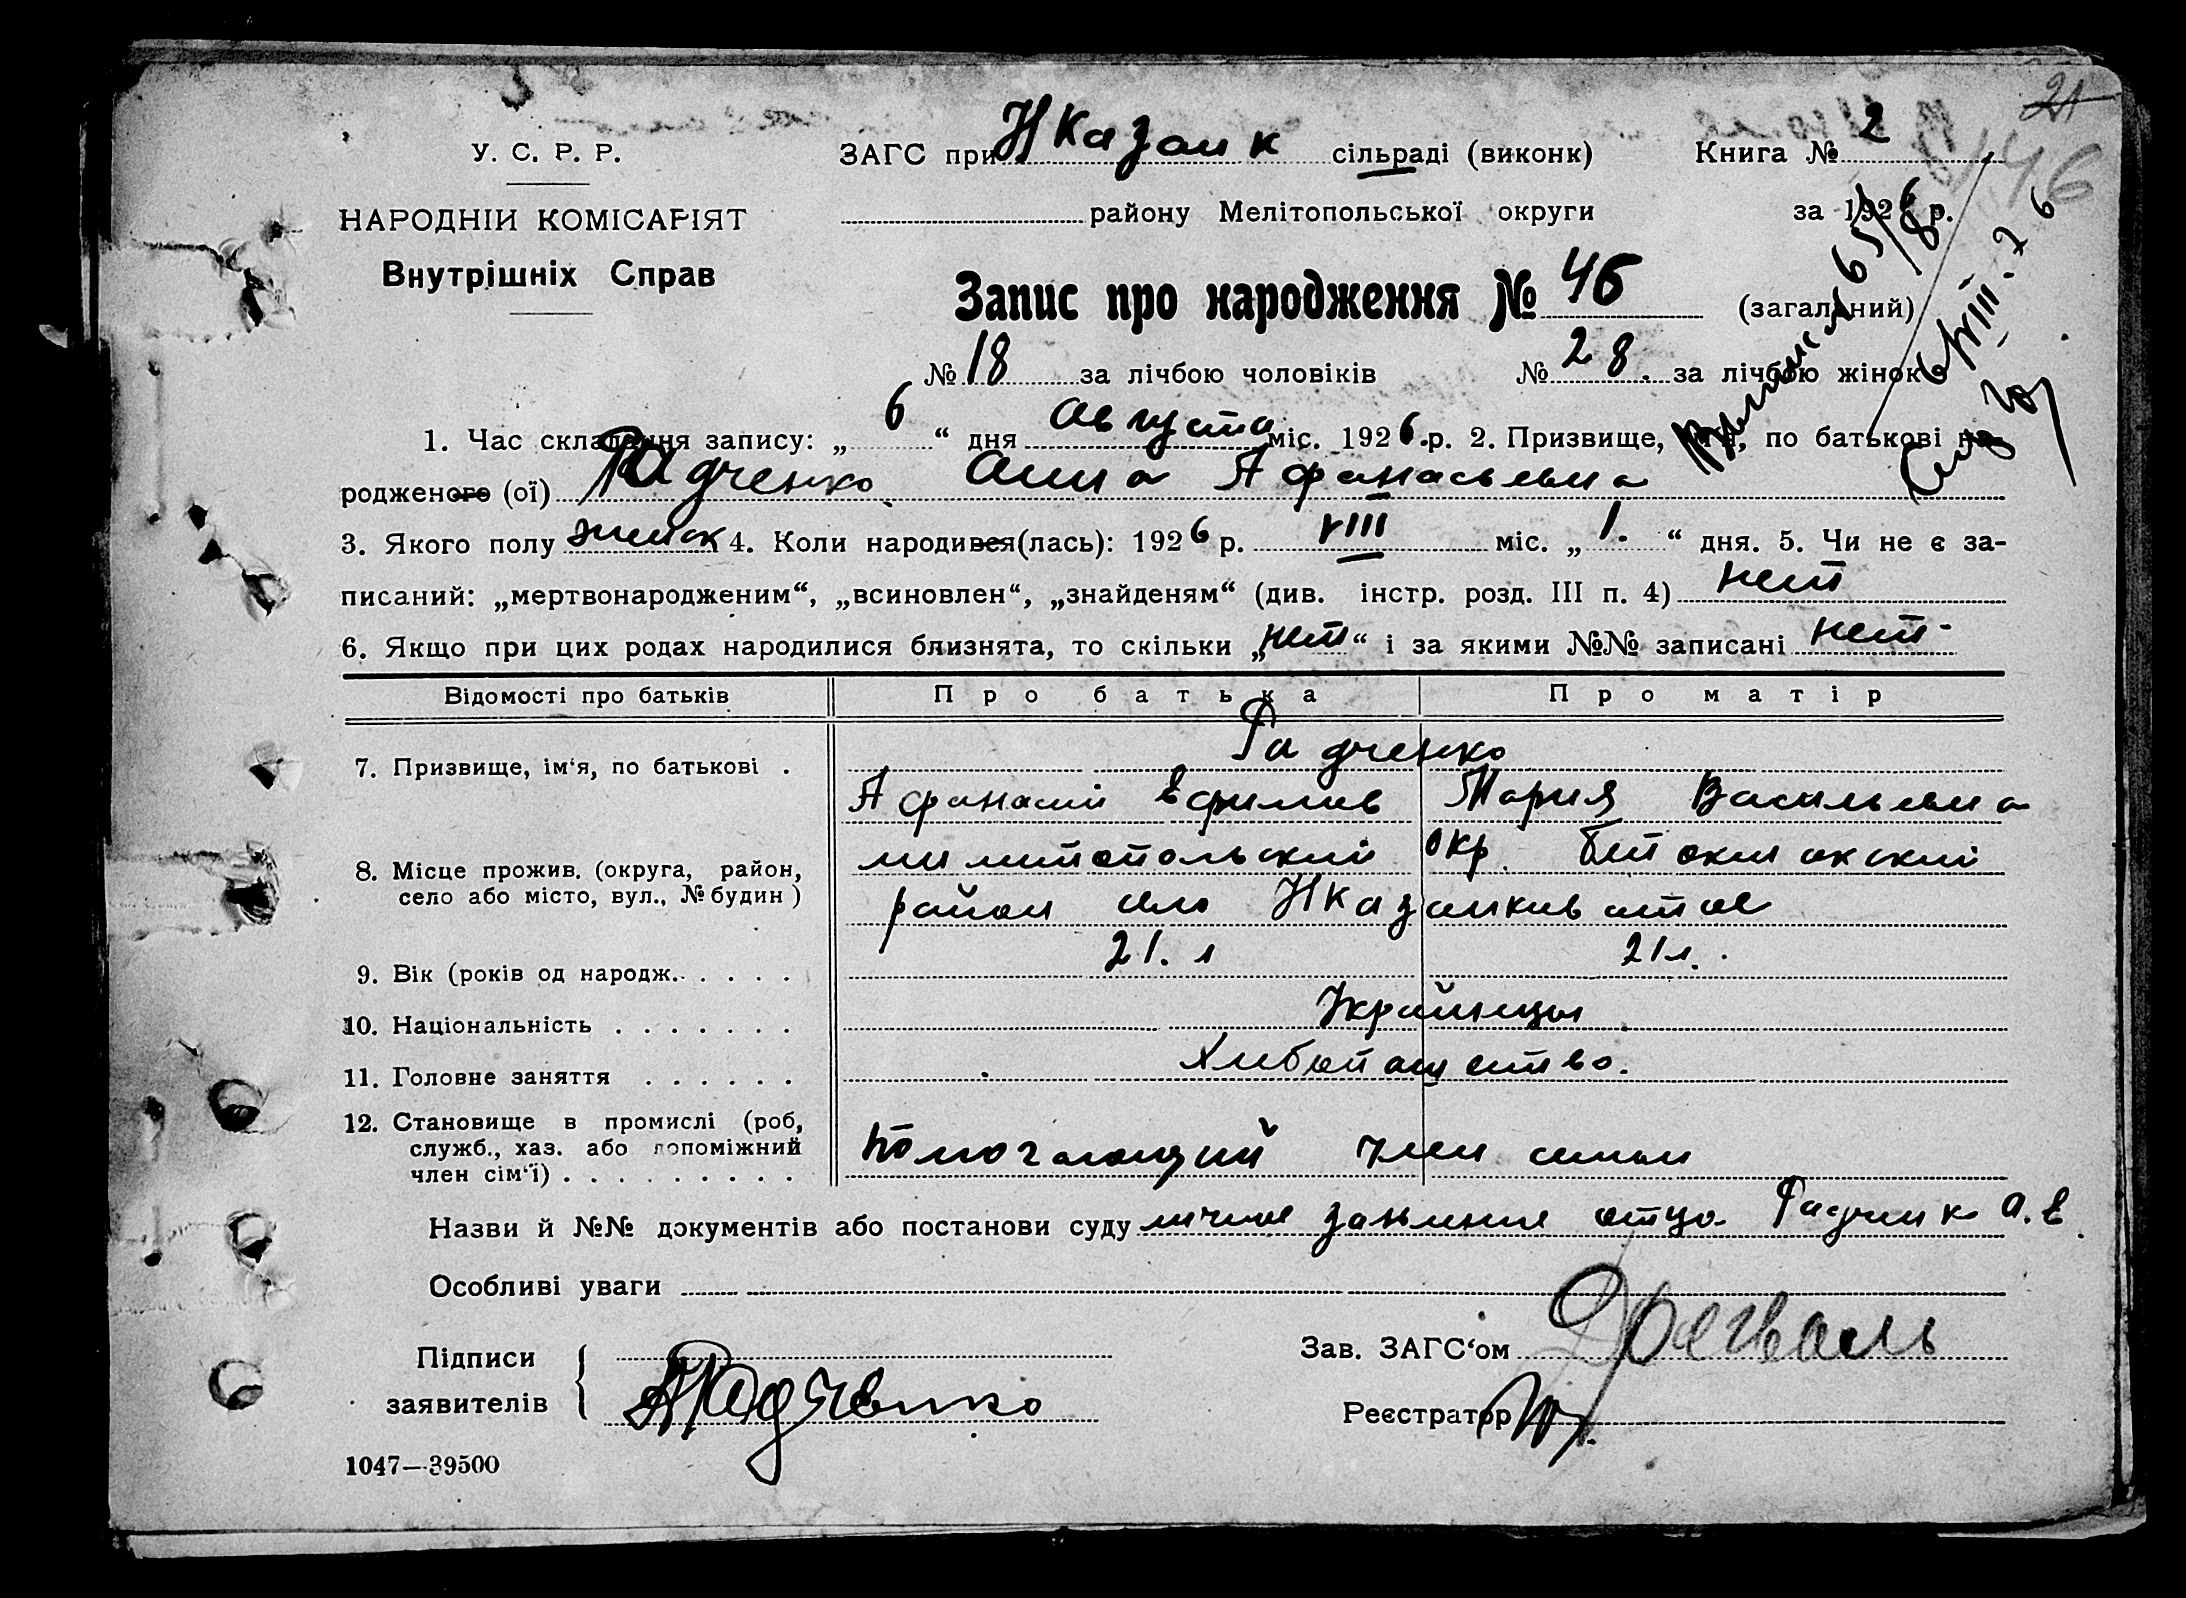 21
146
У. С. Р. Р.
ЗАГС при НКазанк сільраді (виконк) Книга № 2
НАРОДНІЙ КОМІСАРІЯТ
району Мелітопольської округи за 1926 р.
Внутрішніх Справ
Запис про народження № 46 (загальний)
№ 18 за лічбою чоловіків № 28. за лічбою жінок
1. Час складання запису: „ 6 “ дня Августа міс. 1926 р. 2. Призвище, ім'я, по батькові на-
родженого (ої) Радченко Анна Афанасьевна
3. Якого полу женск 4. Коли народився(лась): 1926 р. VIII міс. „ 1. “ дня. 5. Чи не є за-
писаний: „мертвонародженим“, „всиновлен“, „знайденям“ (див. інстр. розд. III п. 4) нет
6. Якщо при цих родах народилися близнята, то скільки „ нет “ і за якими №№ записані нет
Відомості про батьків Про батька Про матір
7. Призвище, ім‘я, по батькові . Радченко
Афанасий Ефимов Мария Васильевна
8. Місце прожив. (округа, район, село або місто, вул., № будин )
милитопольский окр.
район село НКазанковатое
9. Вік (років од народж. . . . . . 21. л 21 л.
10. Національність . . . . . . . Украйнцы
11. Головне заняття . . . . . . Хлебопашество.
12. Становище в промислі (роб,
служб., хаз. або допоміжний
член сім‘ї) . . . . . . . . . Помогающий член семьи
Назви й №№ документів або постанови суду личное заявление отца Радченк А. Е
Особливі уваги
Підписи Зав. ЗАГС‘ом
заявителів АРадченко Реєстратор
1047—39500